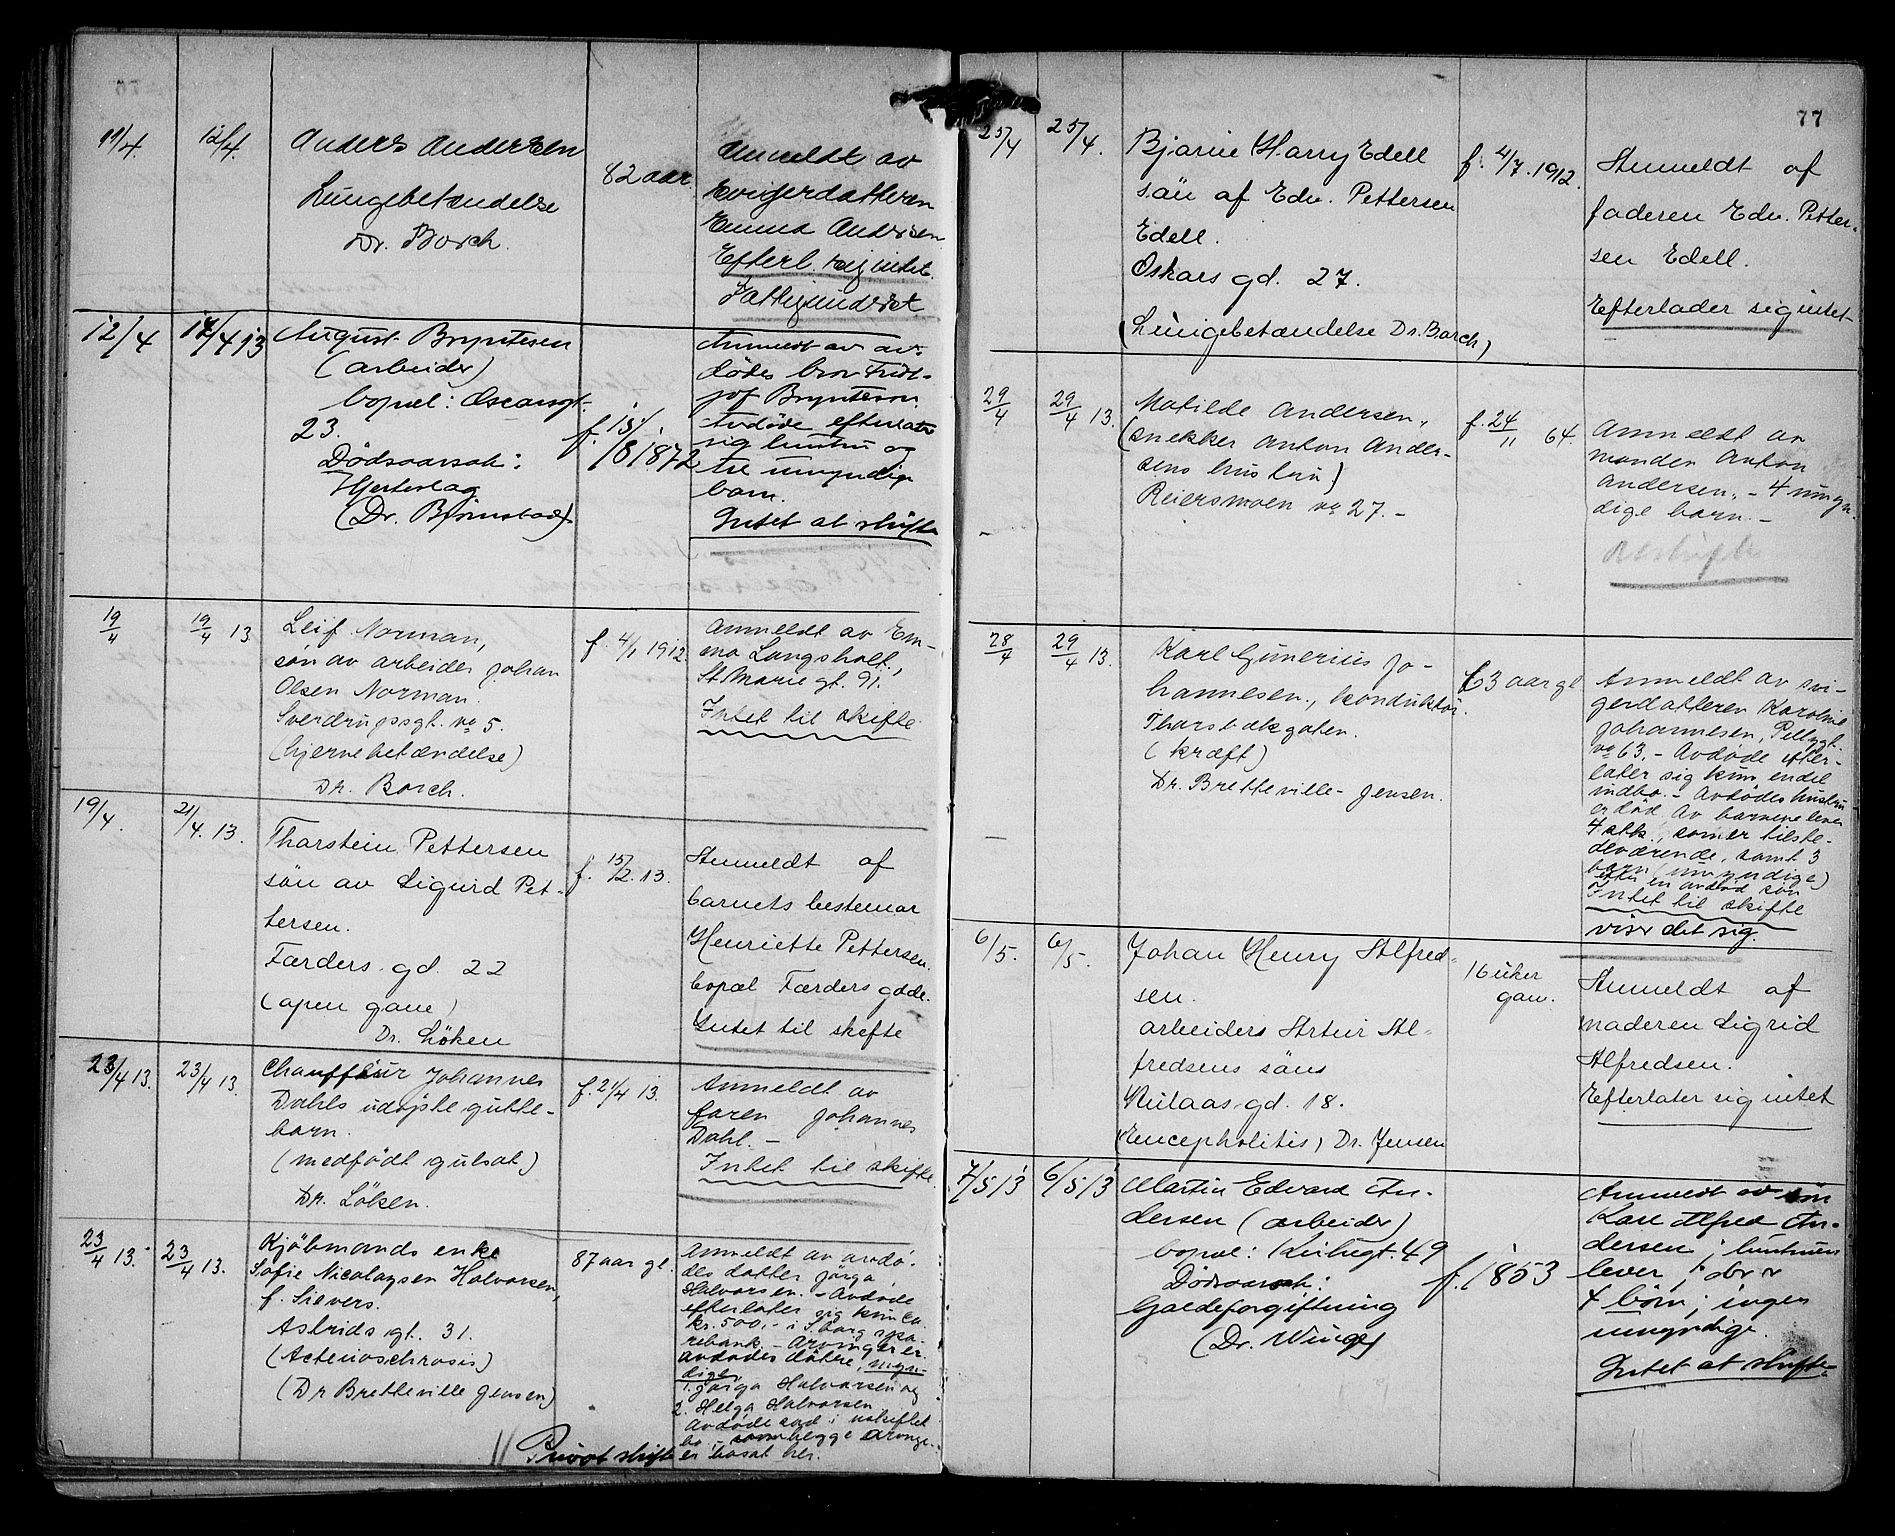 76
11/4.
12/4.
Anders Andersen
Lungebetændelse
Dr. Borch.
82 aar
Anmeldt av
svigerdatteren
Emma Andersen
Efterl. sig intet.
Fattigunderst
12/4
14/4 13
August Bryntesen
(arbeider)
bopæl: Oscarsgt.
23.
Dødsaarsak:
Hjerteslag
(Dr. Bjørnstad)
f. 15/8 1872
Anmeldt av av-
dødes bror Fridt-
jof Bryntesen.
Avdøde efterlater
sig hustru og
tre umyndige
barn.
Intet at skifte
19/4
19/4 13
Leif Norman,
søn av arbeider Johan
Olsen Norman.
Sverdrupssgt. No 5.
(hjernebetændelse)
Dr. Borch.
f. 4/1 1912.
Anmeldt av Em-
ma Langsholt.,
St. Marie gt. 91.
Intet til skifte.
19/4.
21/4. 13.
Thorstein Pettersen
sön av Sigurd Pet-
tersen.
Færders gd. 22
(apen gane)
Dr. Löken
f. 15/2. 13.
Anmeldt af
barnets bestemor
Henriette Pettersen.
bopæl Færders gade.
Intet til skefte
23/4 13.
23/4 13.
Chauffeur Johannes
Dahls udøpte gutte-
barn.
(medfödt gulsot)
Dr. Löken.
f. 21/4 13.
Anmeldt av
faren Johannes
Dahl. -
Intet til skifte.
23/4 13.
23/4 13.
Kjöbmands enke
Sofie Nicolaysen Halvorsen,
f. Sievers.
Astrids gt. 31.
(Acterioschrosis)
(Dr Bretteville Jensen)
87 aar gl.
Anmeldt av avdö-
des datter Jörga
Halvorsen. - Avdöde
efterlater sig kun ca.
kr. 500,- i S.borg spa-
rebank. - Arvinger er
avdödes døtre, myn-
dige,
1. Jörga Halvorsen og
2. Helga Halvorsen
Avdöde sad i uskiftet
bo, - begge arvinge-
er bosat her.
Privat skifte
77
25/4
25/4.
Bjarne Harry Edell
sön af Edv. Pettersen
Edell.
Oskars gd. 27.
(Lungebetændelse Dr. Borch)
f. 4/7. 1912.
Anmeldt af
faderen Edv. Petter-
sen Edell.
Efterlader sig intet
29/4
29/4 13.
Matilde Andersen,
(snekker Anton Ander-
sens hustru)
Reiersmoen No 27. -
f. 24/11 64.
Anmeldt av
manden Anton
Andersen. - 4 umyn-
dige barn. -
28/4
29/4 13.
Karl Gunerius Jo-
hannesen, konduktör.
Tharsbækgaten.
(kræft)
Dr. Bretteville-Jensen.
63 aar gl
Anmeldt av svi-
gerdatteren Karoline
Johannesen, Pellygt.
No 63. - Avdöde efter-
later sig kun endel
indbo. - Avdödes hustru
er död Av barnene lever
4 stk., som er tilste-
deværende, samt 3
barn (umyndige)
efter en avdöd sön
Intet til skifte
viser det sig.
6/5.
6/5.
Johan Henry Alfred-
sen.
arbeiders Artur Al-
fredsens söns
Nulaas gd. 18.
(Encepholitis) Dr. Jensen
16 uker
gam.
Anmeldt af
moderen Sigrid
Alfredsen.
Efterlater sig intet
7/5 13
6/5 13
Martin Edvard An-
dersen (arbeider)
bopæl: Kirkegt. 49
Dødsaarsak:
Galdeforgiftning
(Dr. Winge)
f. 1853
Anmeldt av søn
Karl Alfred An-
dersen; hustruen
lever; der er
4 børn; ingen
umyndige.
Intet at skifte.